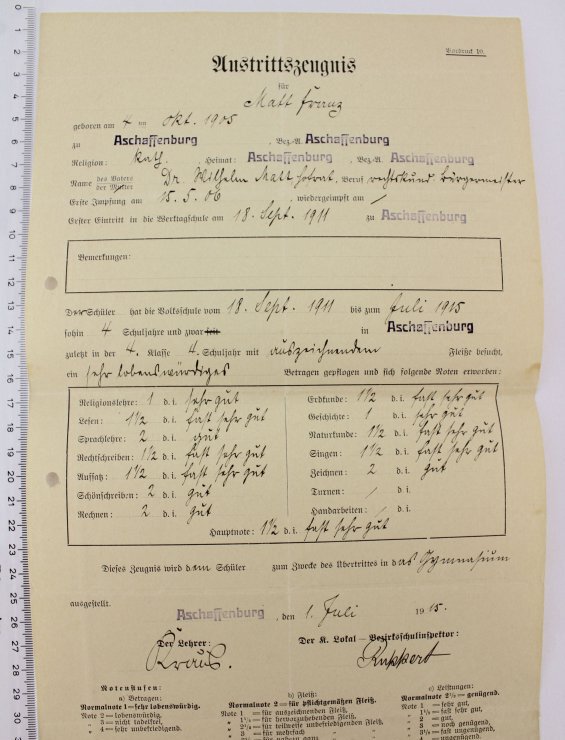 Vordruck 10.
Austrittszeugnis
für
Matt Franz
geboren am 4 ten Okt. 1905
zu Aschaffenburg, Bez.-A. Aschaffenburg
Religion: kath., Heimat: Aschaffenburg, Bez.-A. Aschaffenburg
Name des Vaters der Mutter Dr. Wilhelm Matt Hofrat, Beruf rechtskund Bürgermeister
Erste Impfung am 15. 5. 06 wiedergeimpft am /
Erster Eintritt in die Werktagschule am 18. Sept. 1911 zu Aschaffenburg
Bemerkungen:
Der Schüler hat die Volksschule vom 18. Sept. 1911 bis zum Juli 1915
sohin 4 Schuljahre und zwar in Aschaffenburg
zuletzt in der 4. Klasse 4. Schuljahr mit auszeichnendem Fleiße besucht,
ein sehr lobenswürdiges Betragen gepflogen und sich folgende Noten erworben:
Religionslehre: 1 d. i. sehr gut
Lesen: 1½ d. i. fast sehr gut
Sprachlehre: 2 d. i. gut
Rechtschreiben: 1½ d. i. fast sehr gut
Aufsatz: 1½ d. i. fast sehr gut
Schönschreiben: 2 d. i. gut
Rechnen: 2 d. i. gut
Erdkunde: 1½ d. i. fast sehr gut
Geschichte: 1 d. i. sehr gut
Naturkunde: 1½ d. i. fast sehr gut
Singen: 1½ d. i. fast sehr gut
Zeichnen: 2 d. i. gut
Turnen: / d. i.
Handarbeiten: / d. i.
Hauptnote: 1½ d. i. fast sehr gut
Dieses Zeugnis wird dem Schüler zum Zwecke des Übertrittes in das Gymnasium
ausgestellt.
Aschaffenburg, den 1. Juli 1915.
Der Lehrer:
Kraus.
Der K. Lokal – Bezirksschulinspektor:
Ruppert
Notenstufen:
a) Betragen:
Normalnote 1 = sehr lobenswürdig.
Note 2 = lobenswürdig,
„ 3 = nicht tadelfrei,
„ 4 = sehr unbefriedigend.
b) Fleiß:
Normalnote 2 = für pflichtgemäßen Fleiß.
Note 1 = für auszeichnenden Fleiß,
„ 1½ = für hervorzuhebenden Fleiß,
„ 2½ = für teilweise unbefriedigenden Fleiß,
„ 3 = für mehrfach
c) Leistungen:
Normalnote 2½ = genügend.
Note 1 = sehr gut,
„ 1½ = fast sehr gut,
„ 2 = gut,
„ 3 = noch genügend,
„ 3½ = fast ungenügend,